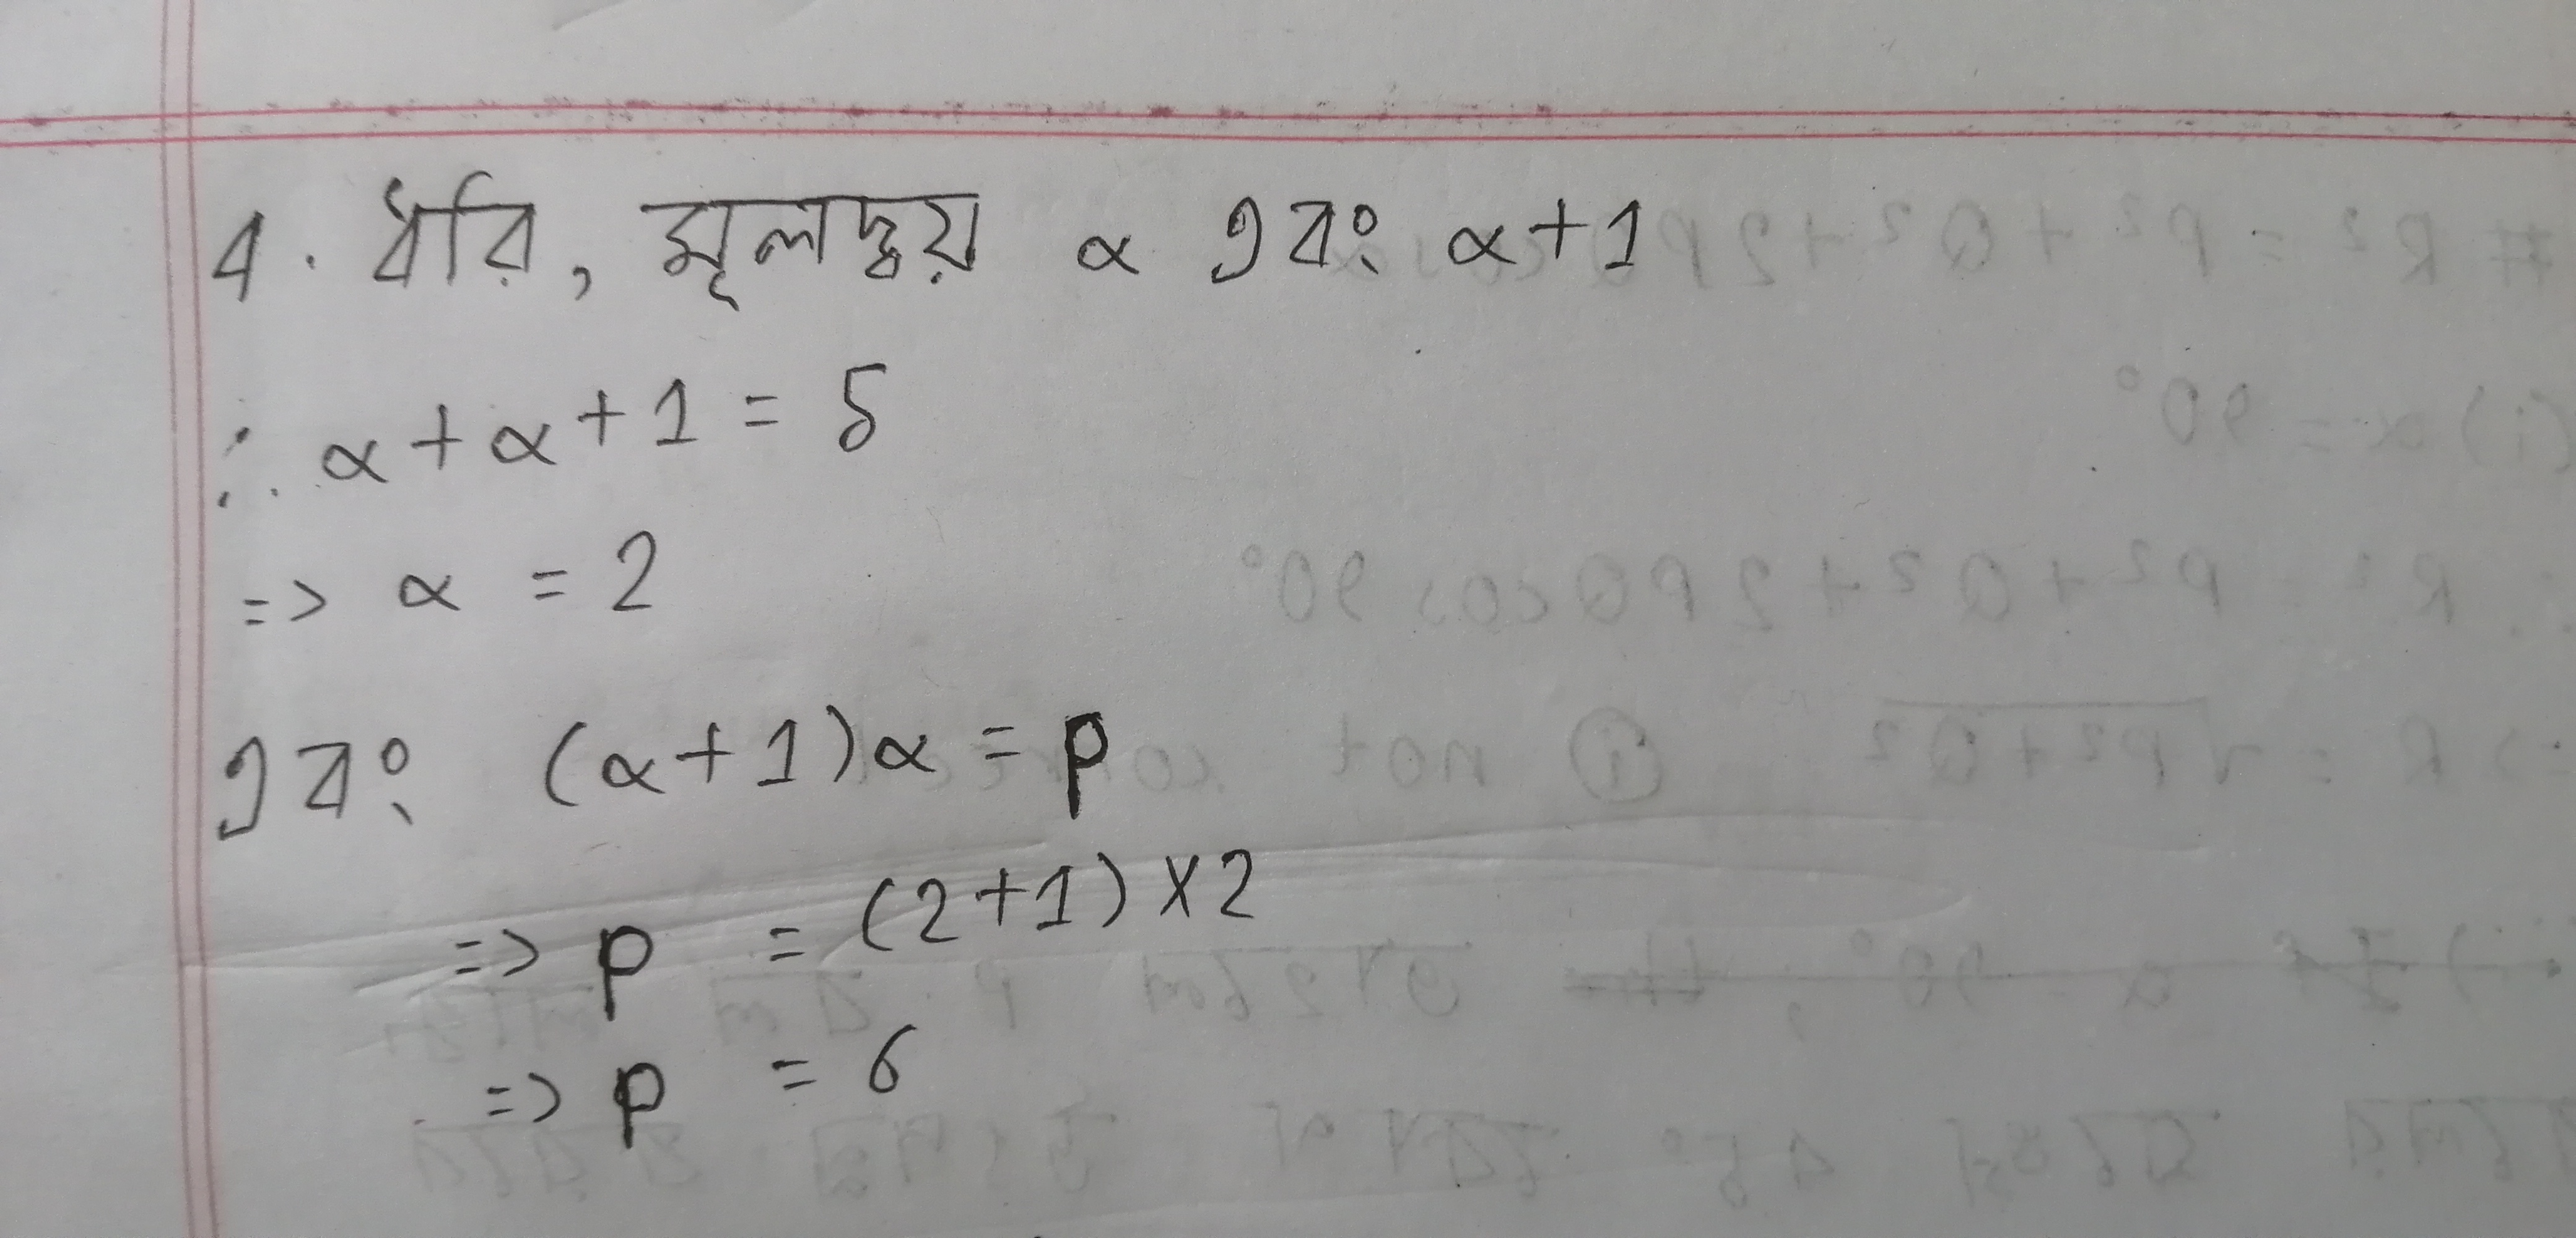 4. ধরি, মূলদ্বয় α এবং α+1
∴ α+α+1 = 5
=> α = 2
এবং (α+1)α = p
=> p = (2+1)×2
=> p = 6